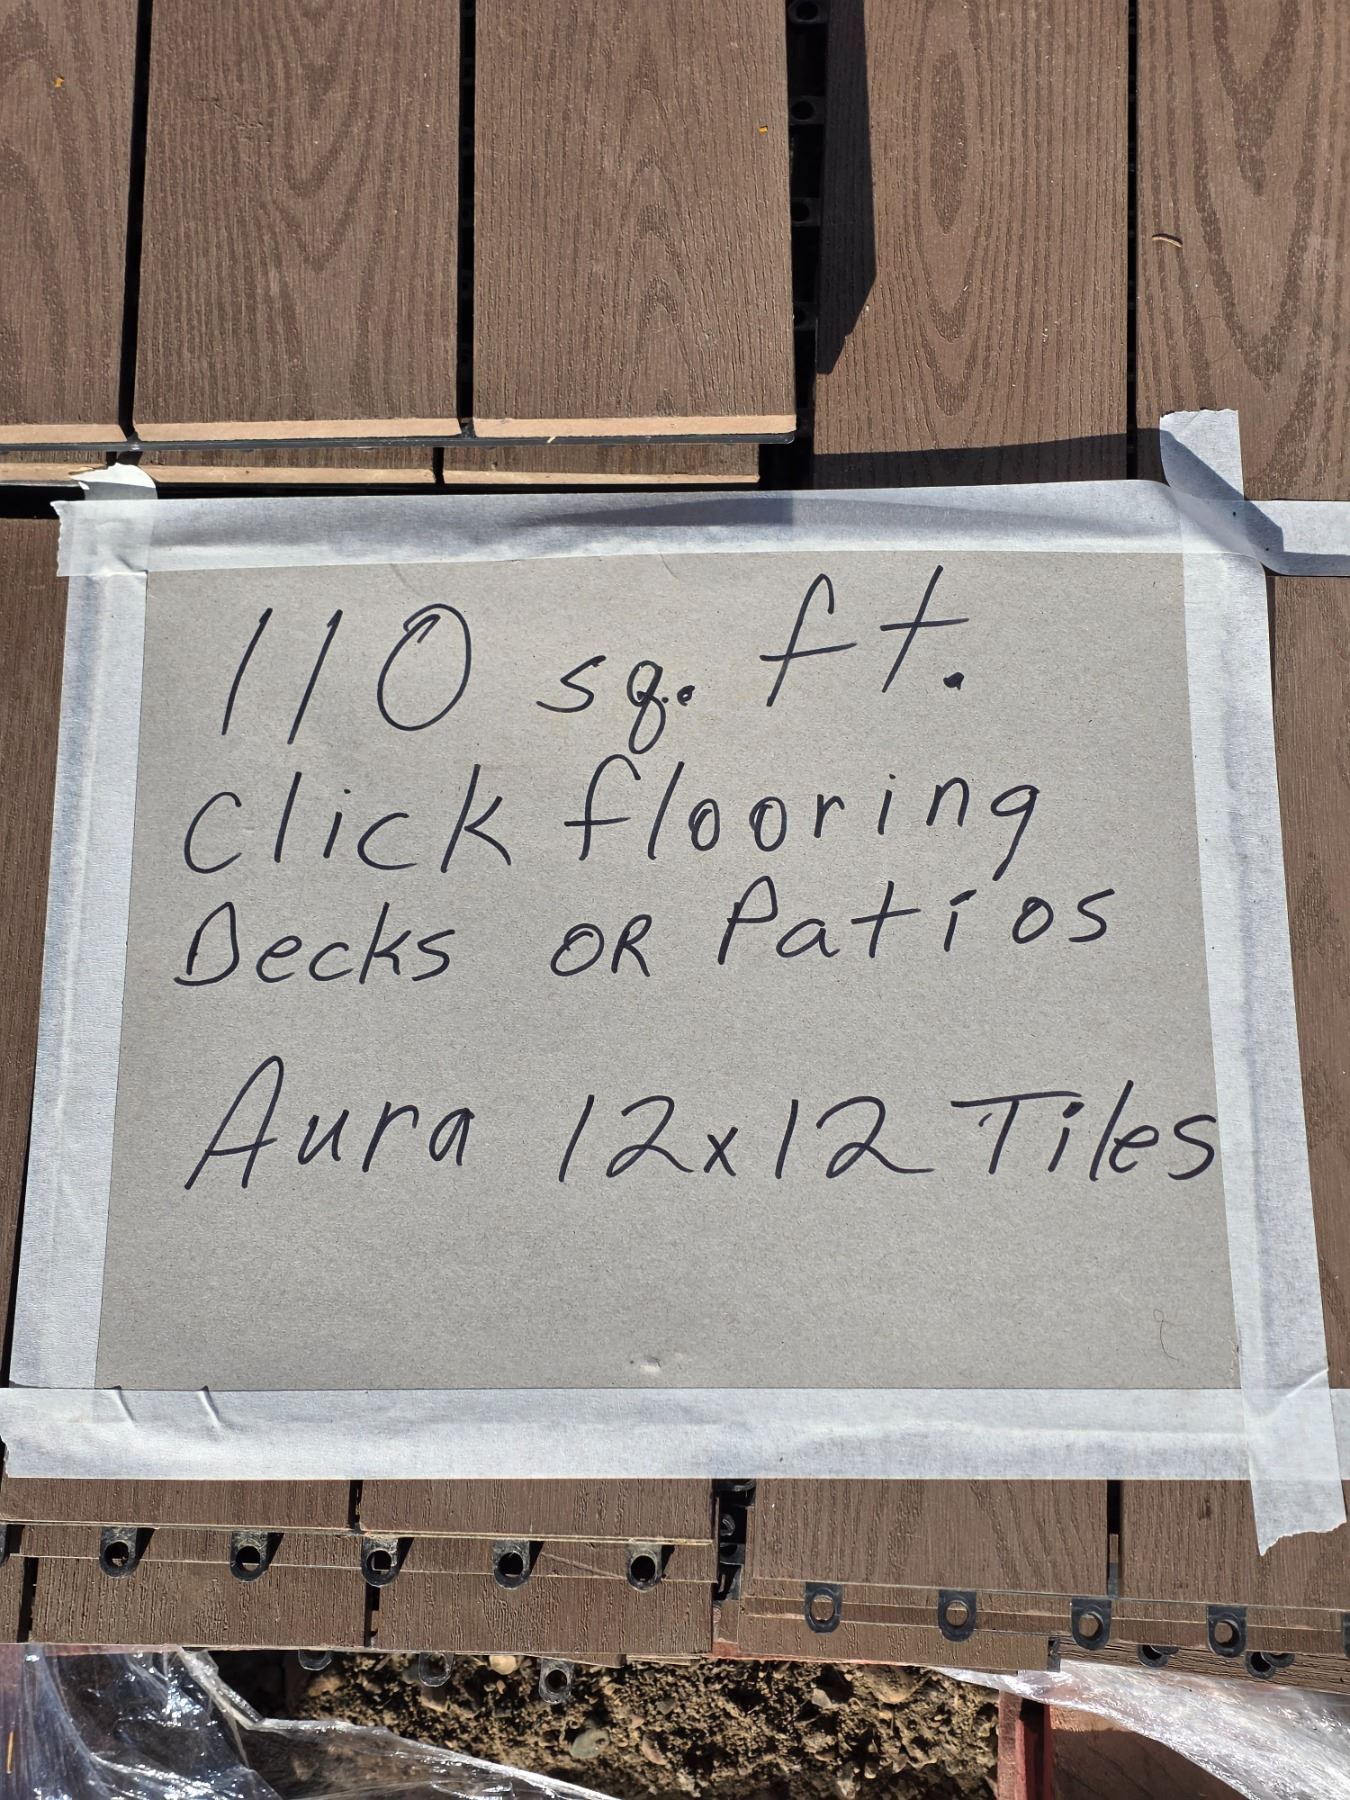 110 sq. ft.
Click flooring
Decks OR Patios
Aura 12x12 Tiles